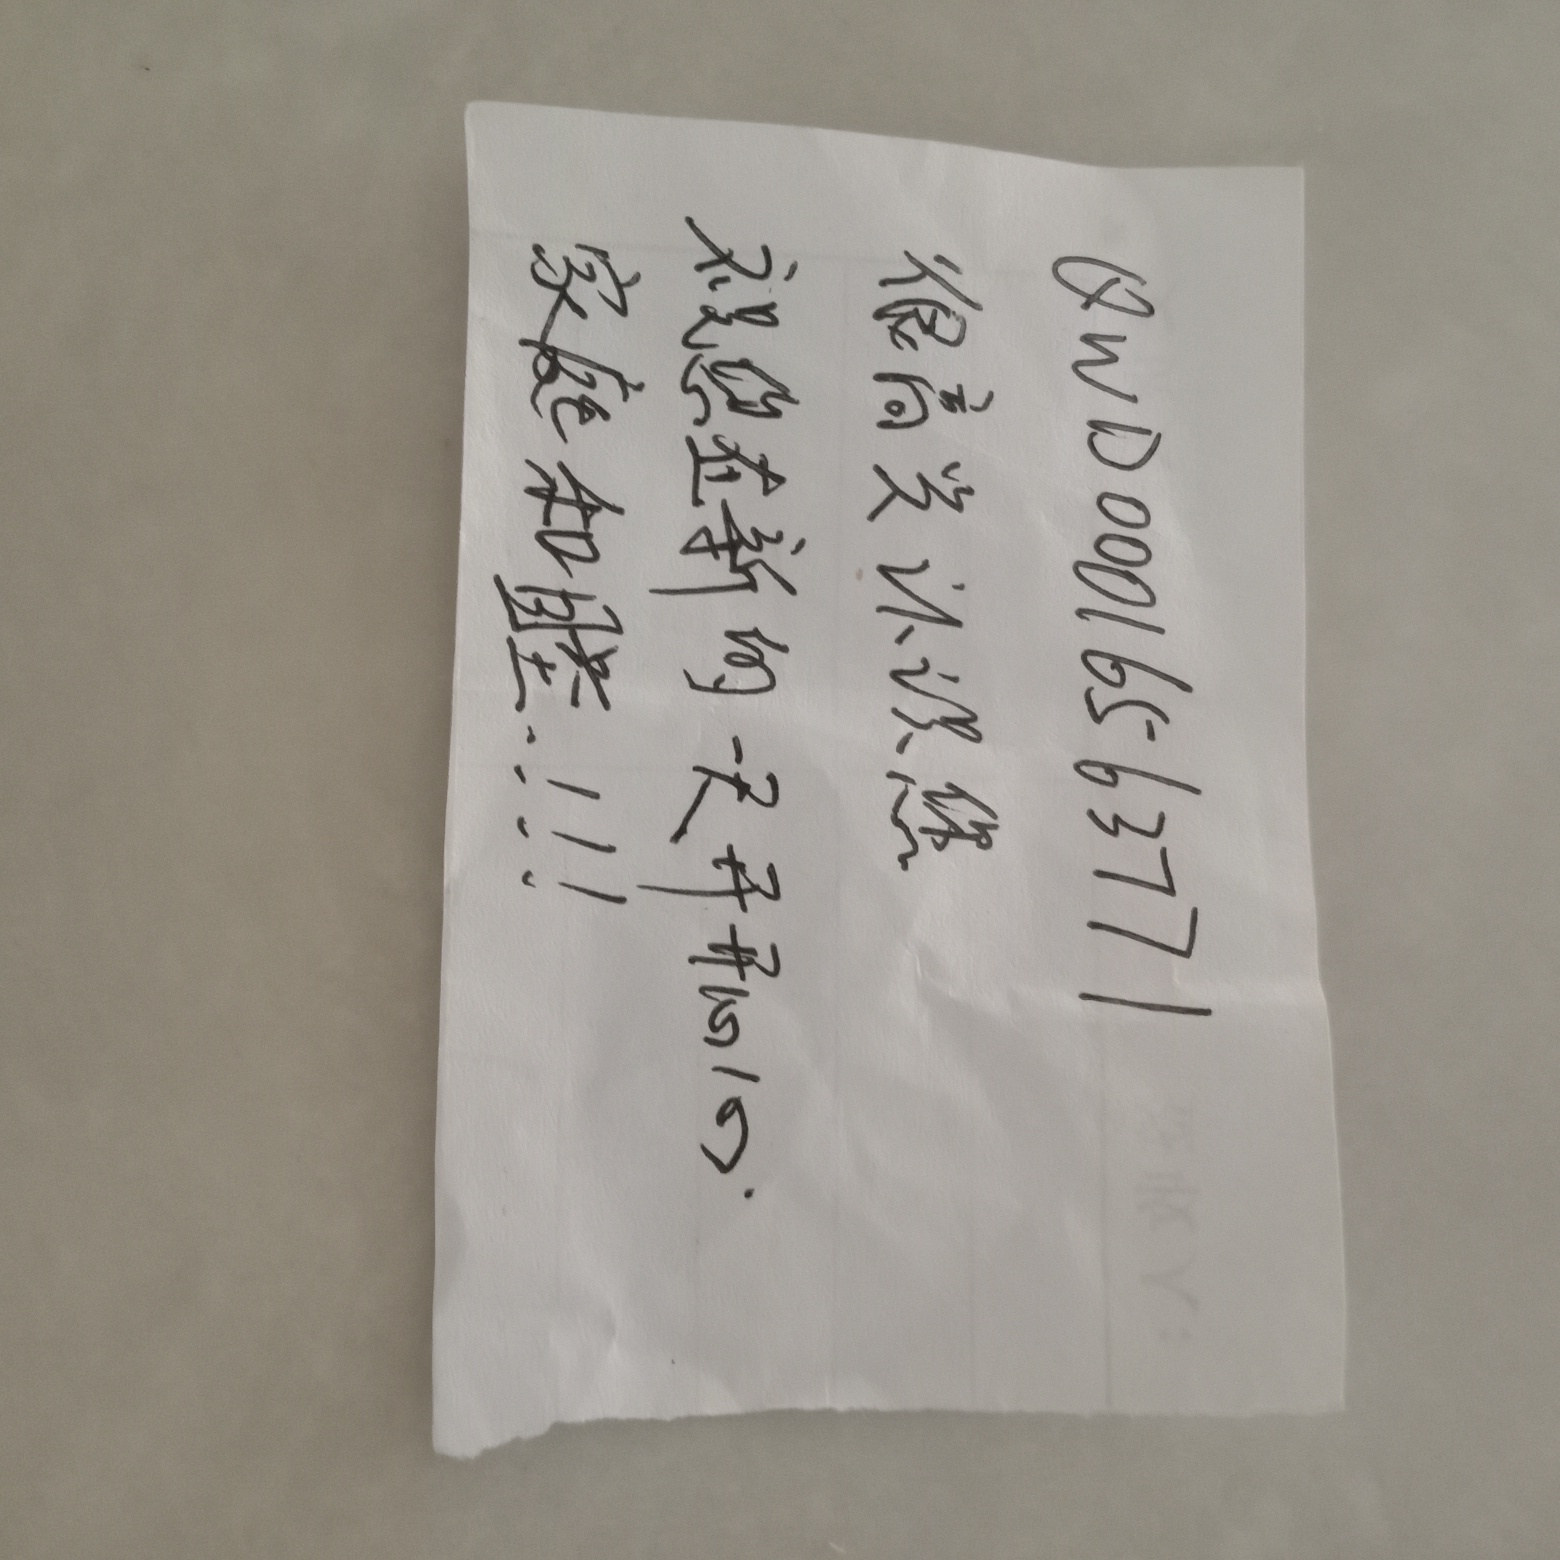 QWD00016563771
很高兴认识您
祝您在新的一天开开心心.
家庭和睦..!!!